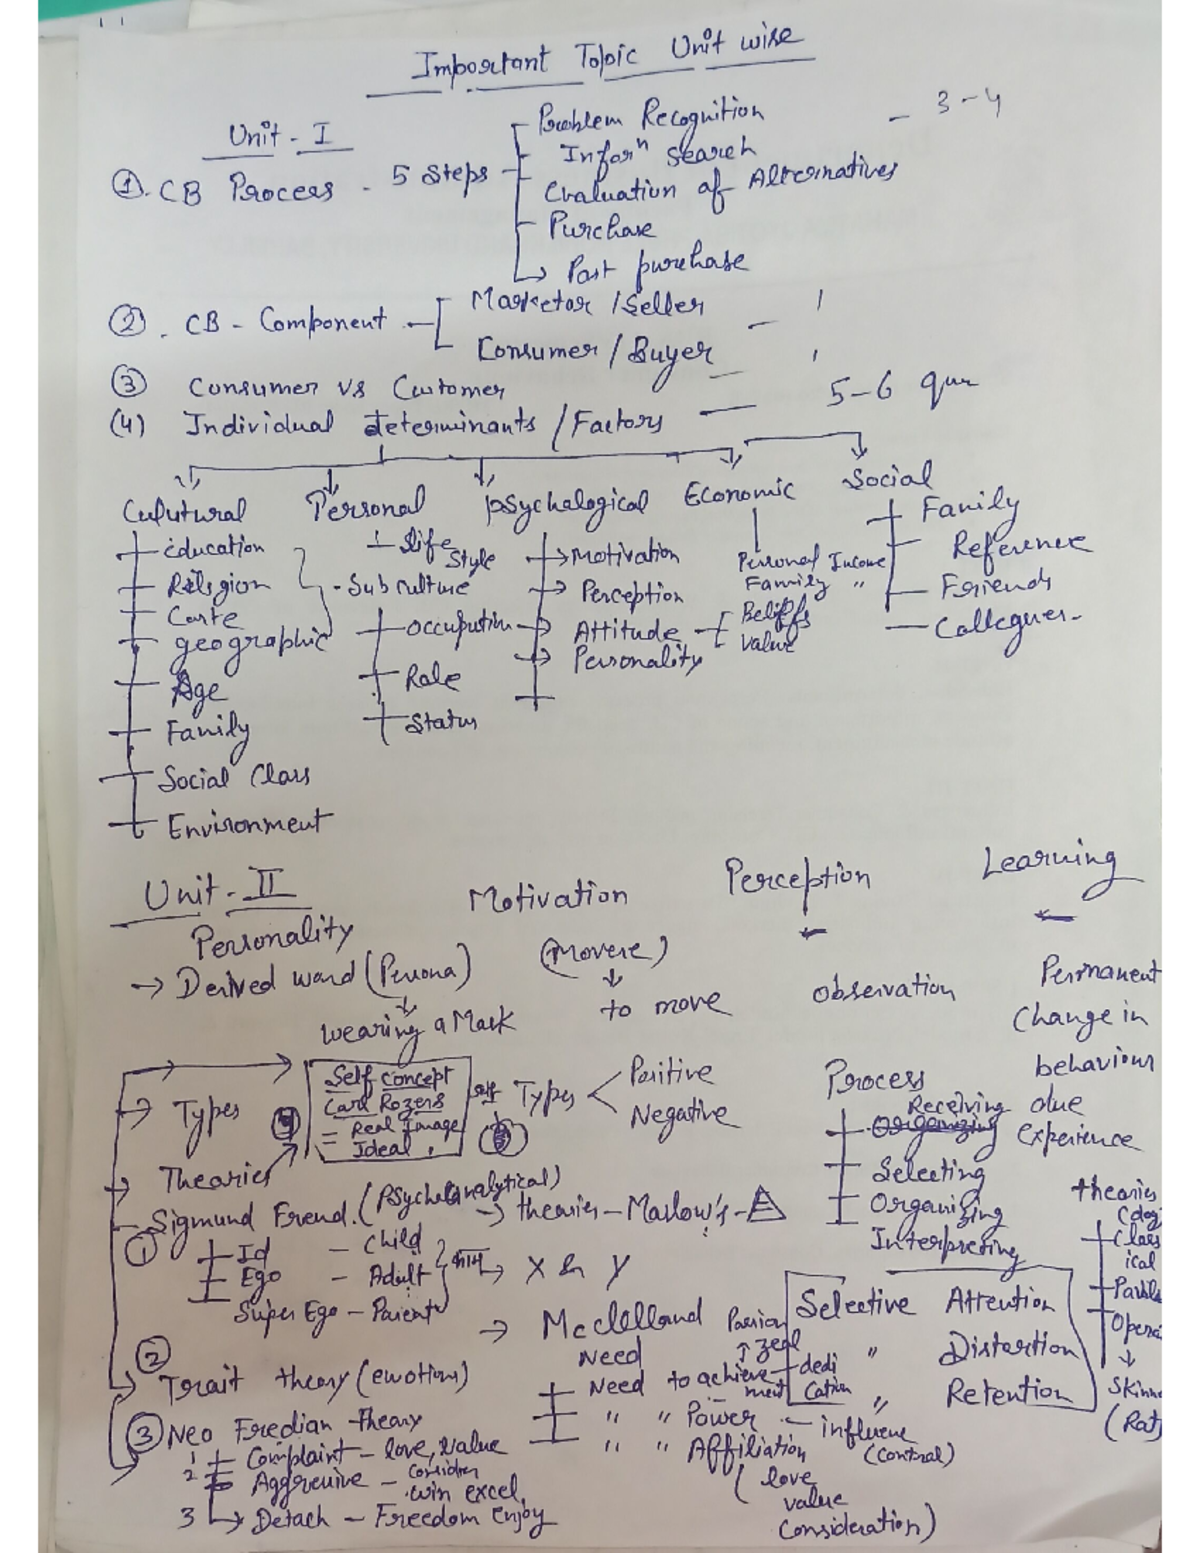 Important Topic Unit wise
Unit - I
① CB Process - 5 Steps
Problem Recognition - 3-4
Inforⁿ Search
Evaluation of Alternatives
Purchase
Post purchase
② . CB - Component
Marketor / Seller - 1
Consumer / Buyer - 1
③ Consumer vs Customer
(4) Individual determinants / Factors — 5-6 que
Culutural Personal Psychological Economic Social
Education
Religion
Caste
geographic
- Subculture
Age
Family
Social Class
Environment
Life Style
Occupution
Role
Status
Motivation
Perception
Attitude
Beliefs
Value
Personality
Personal Income
Family "
Family
Reference
Friends
Collegues
Unit - II
Personality
→ Derived word (Persona)
wearing a Mask
→ Types
→ Theories
Self concept
Carl Rozers
= Real Image
= Ideal "
Sigmund Freud. (Psychoanalytical)
①
Id - Child
Ego - Adult
Super Ego - Parents
②
Trait theory (emotions)
③ Neo Fredian theory
1 Complaint - love, value
consider
2 Aggressive - win excel,
3 Detach - Freedom Enjoy
Motivation
(Movere)
to move
Types
Positive
Negative
→ theories - Maslow's - △
→ X & Y
→ Mcclelland
Need
Need to achievement
Passion
zeal
dedication
" " Power - influence
(control)
" " Affiliation
(love
value
consideration)
Perception
Observation
Process
Receiving
Organizing
Selecting
Organizing
Interpreting
Selective Attention
" Distortion
" Retention
Learning
Permanent
Change in
behaviour
due
experience
theories
(dog
Class
ical
Pavlo
Opera
Skinne
(Rat)